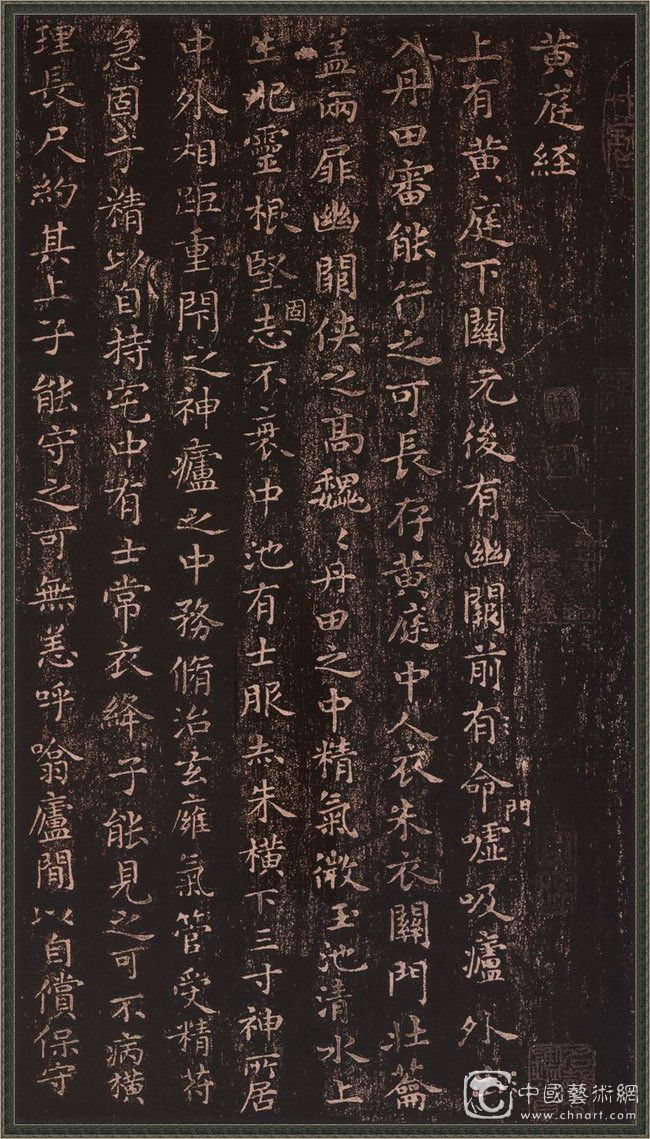 黄庭經
上有黄庭下關元後有幽闕前有命門嘘吸廬外
入丹田審能行之可長存黄庭中人衣朱衣關門壮蘥
盖兩扉幽闕侠之高魏〻丹田之中精氣微玉池清水上
生肥靈根堅固志不衰中池有士服赤朱橫下三寸神所居
中外相距重閇之神廬之中務脩治玄癰氣管受精苻
急固子精以自持宅中有士常衣絳子能見之可不病橫
理長尺約其上子能守之可無恙呼噏廬間以自償保守
中國藝術網
www.chnart.com